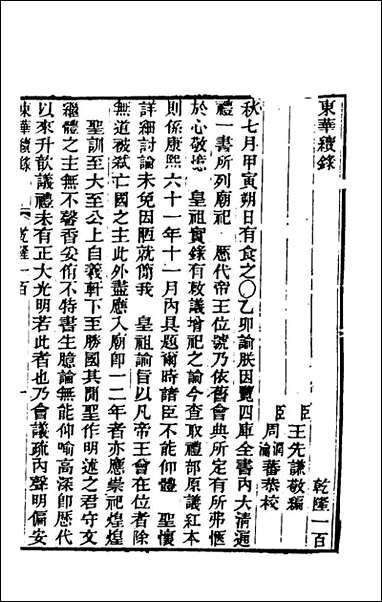 東華續錄
乾隆一百
臣王先謙敬編
臣周潤蕃恭校
秋七月甲寅朔日有食之〇乙卯諭朕因覽四庫全書內大清通
禮一書所列廟祀 歷代帝王位號乃依舊會典所定有所弗愜
於心敬憶 皇祖實錄有敕議增祀之諭今查取禮部原議紅本
則係康熙六十一年十一月內具題爾時諸臣不能仰體 聖懷
詳細討論未免因陋就簡我 皇祖諭旨以凡帝王曾在位者除
無道被弒亡國之主此外盡應入廟即一二年者亦應崇祀煌煌
聖訓至大至公上自羲軒下至勝國其閒聖作明述之君守文
繼體之主無不馨香妥侑不特書生臆論無能仰喻高深即歷代
以來升歆議禮未有正大光明若此者也乃會議疏內聲明偏安
東華續錄
乾隆一百
一